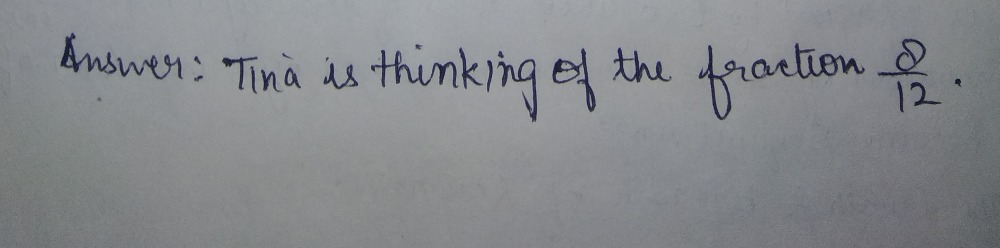 Answer: Tina is thinking of the fraction 8/12.